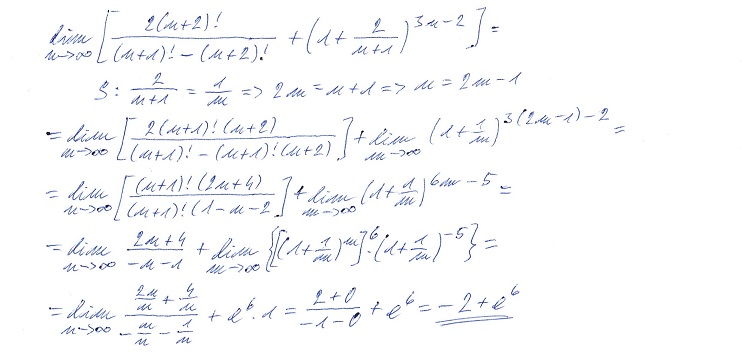 lim n→∞ [ 2(n+2)! / ((n+1)! − (n+2)!) + (1 + 2/(n+1))^(3n−2) ] =
S: 2/(n+1) = 1/m => 2m = n+1 => n = 2m−1
= lim n→∞ [ 2(n+1)!(n+2) / ((n+1)! − (n+1)!(n+2)) ] + lim m→∞ (1 + 1/m)^(3(2m−1)−2) =
= lim n→∞ [ (n+1)!(2n+4) / ((n+1)!(1−n−2) ] + lim m→∞ (1 + 1/m)^(6m−5) =
= lim n→∞ (2n+4)/(−n−1) + lim m→∞ {[(1 + 1/m)^m]^6 · (1 + 1/m)^(−5)} =
= lim n→∞ (2n/n + 4/n)/(−n/n − 1/n) + e^6 · 1 = (2+0)/(−1−0) + e^6 = −2 + e^6